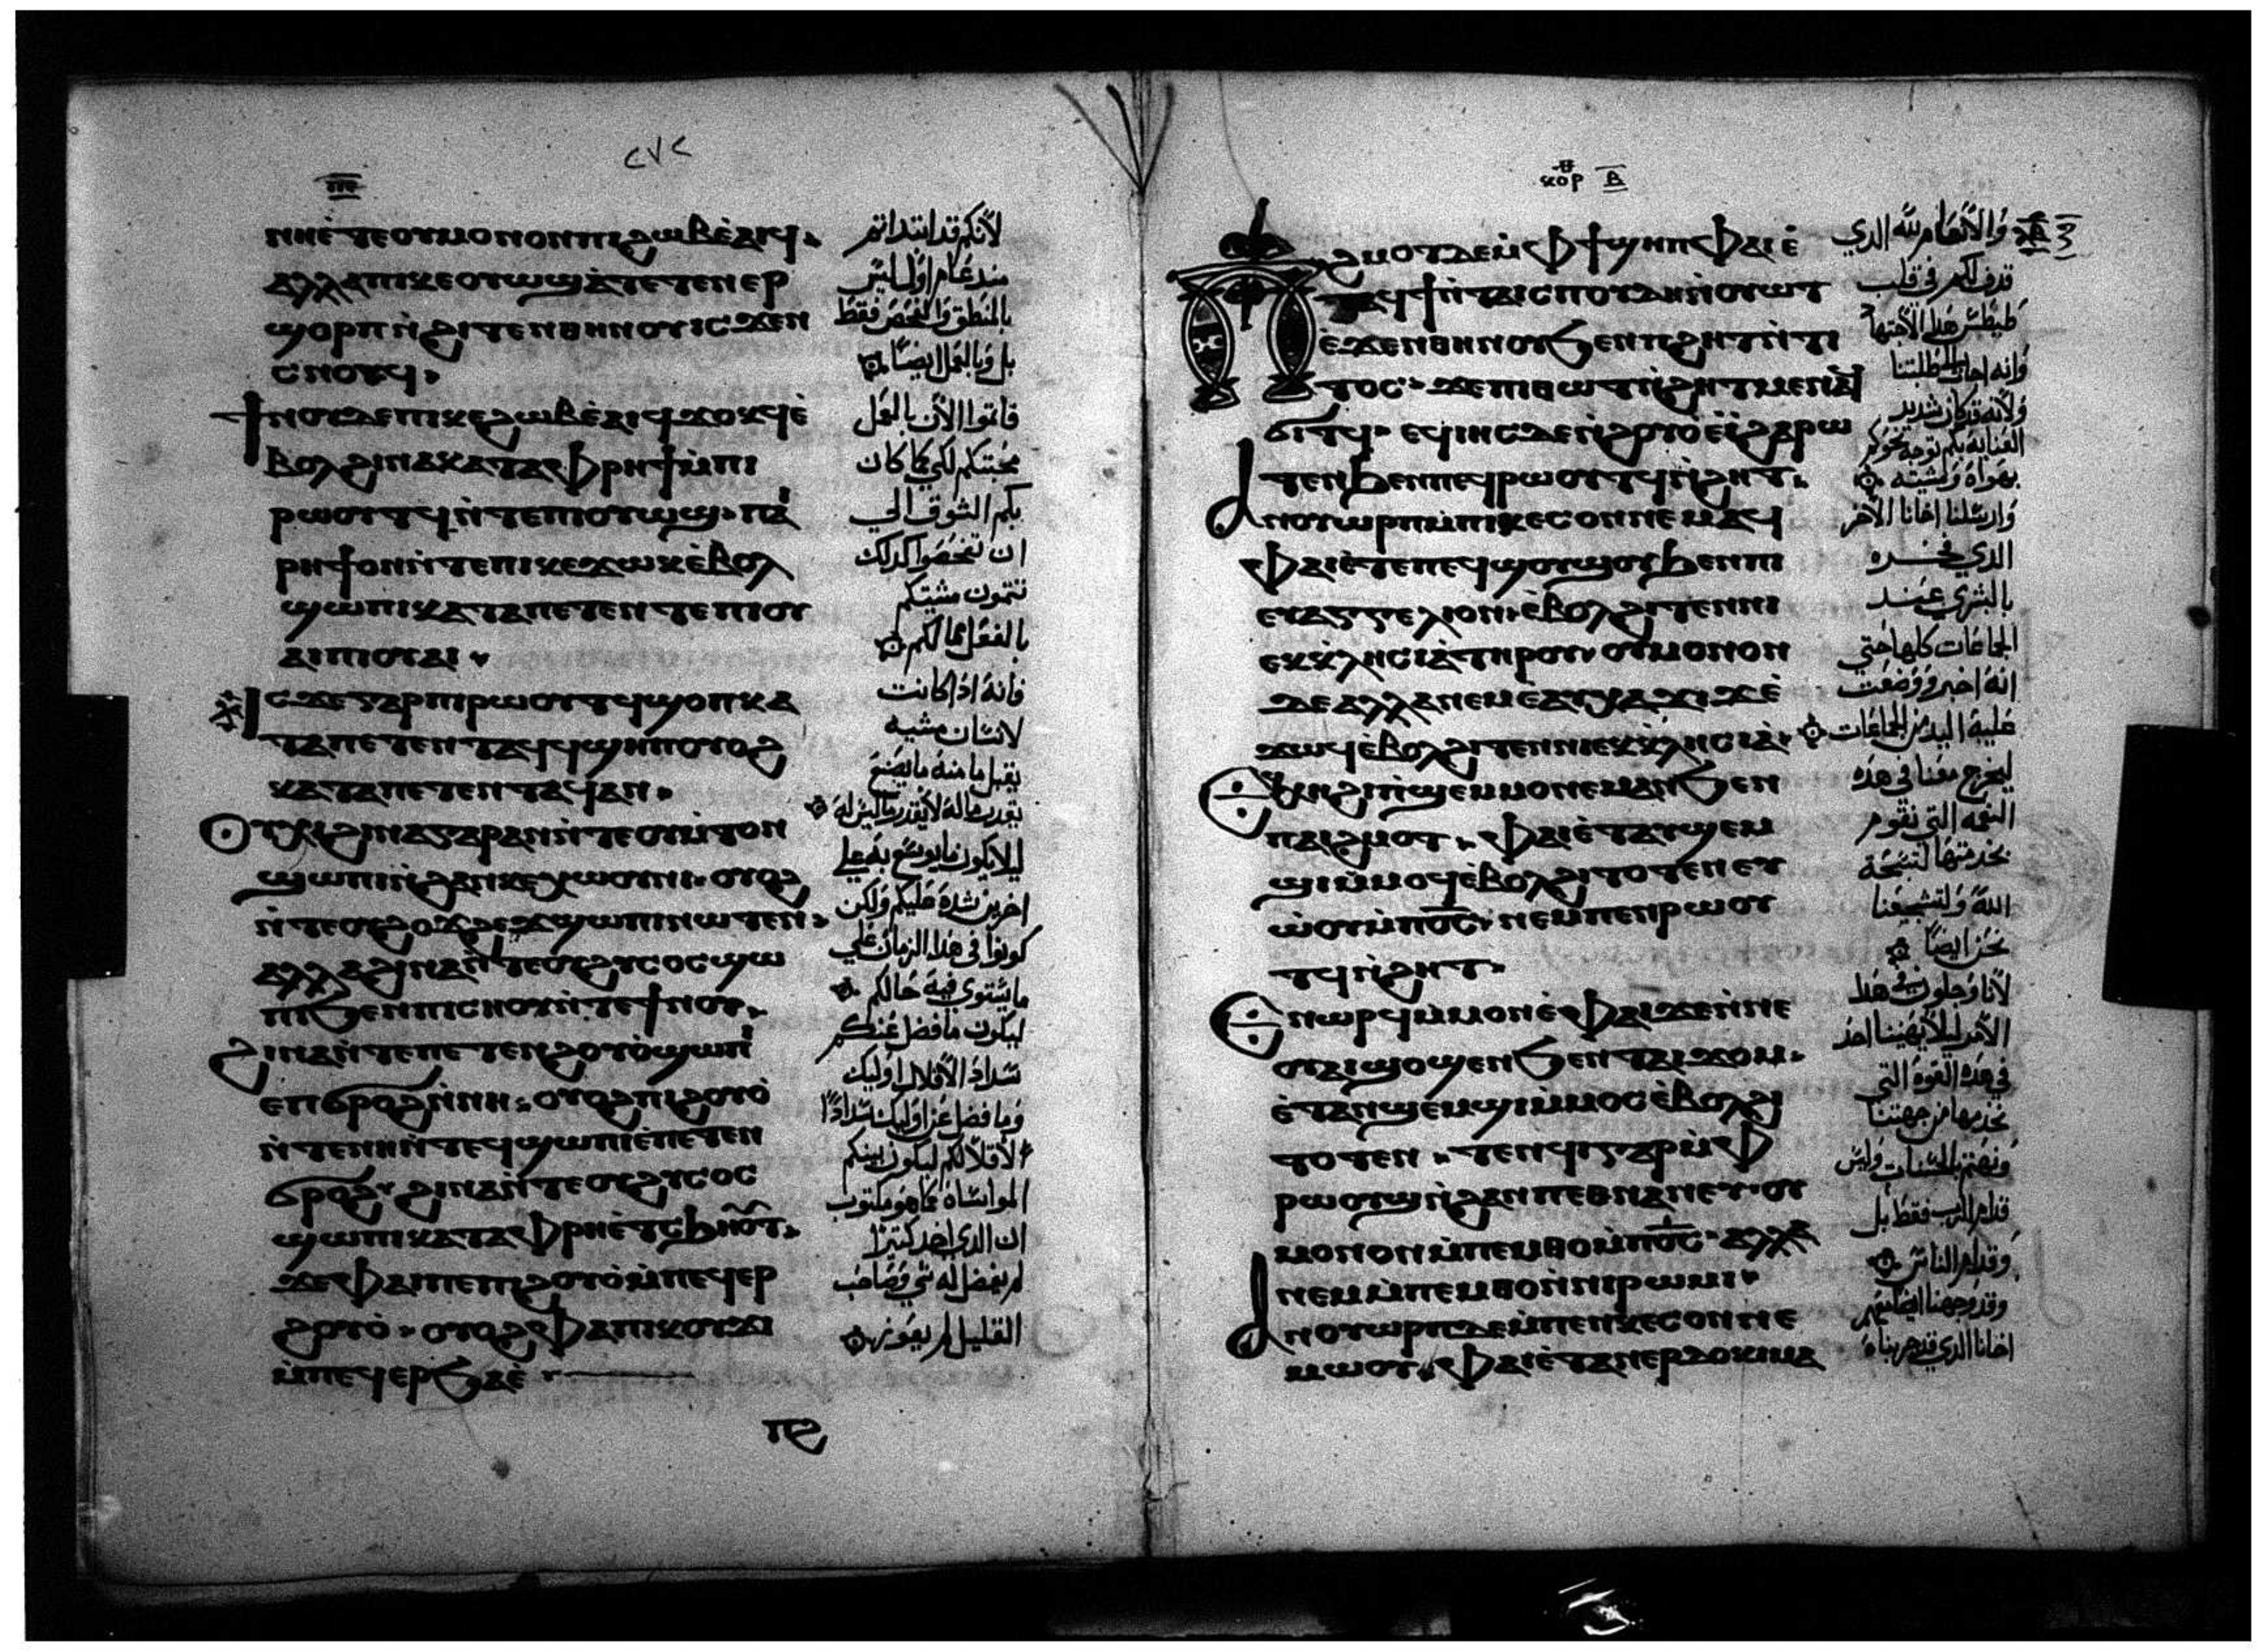 ⲡⲉ
ⲛⲏⲉ̀ⲧⲉⲟⲩⲙⲟⲛⲟⲛⲡⲓϩⲱⲃⲉ̀ⲁⲓϥ·
ⲁⲗⲗⲁⲡⲓⲕⲉⲟⲩⲱϣⲁ̀ⲧⲉⲧⲉⲛⲉⲣ
ϣⲟⲣⲡⲛ̀ϩⲓⲧⲉⲛⲑⲏⲛⲟⲩⲓⲥϫⲉⲛ
ⲥⲛⲟⲩϥ·
ϯⲛⲟⲩⲇⲉⲡⲓⲕⲉϩⲱⲃⲉ̀ⲁⲓϥϫⲟⲕϥⲉ̀
ⲃⲟⲗϩⲓⲛⲁⲕⲁⲧⲁⲫⲣⲏϯⲙ̀ⲡⲓ
ⲣⲱⲟⲩⲧϥⲛ̀ⲧⲉⲡⲓⲟⲩⲱϣ·ⲡⲁⲓ
ⲣⲏϯⲟⲛⲛ̀ⲧⲉⲡⲓⲕⲉϫⲱⲕⲉ̀ⲃⲟⲗ
ϣⲱⲡⲓⲕⲁⲧⲁⲡⲉⲧⲉⲛⲧⲉⲡⲓⲟⲩ
ⲁⲓⲡⲓⲟⲩⲁⲓ·
ⲓⲥϫⲉⲅⲁⲣⲡⲓⲣⲱⲟⲩⲧϥϣⲟⲡⲕⲁ
ⲧⲁⲡⲉⲧⲉⲛⲧⲁϥϥϣⲏⲡⲟⲩⲟϩ
ⲕⲁⲧⲁⲡⲉⲧⲉⲛⲧⲁϥⲁⲛ·
ⲟⲩⲭⲓϩⲓⲛⲁⲅⲁⲣⲁⲛⲛ̀ⲧⲉⲟⲩⲙ̀ⲧⲟⲛ
ϣⲱⲡⲓⲛ̀ϩⲁⲛⲕⲉⲭⲱⲟⲩⲛⲓ·ⲟⲩⲟϩ
ⲛ̀ⲧⲉⲟⲩϩⲟϫϩⲉϫϣⲱⲡⲓⲛⲱⲧⲉⲛ·
ⲁⲗⲗⲁϩⲓⲛⲁⲛ̀ⲧⲉⲟⲩϩⲩⲥⲟⲥϣⲱ
ⲡⲓϧⲉⲛⲡⲓⲥⲛⲟⲩⲛ̀ⲧⲉϯⲛⲟⲩ·
ϩⲓⲛⲁⲛ̀ⲧⲉⲡⲉⲧⲉⲛϩⲟⲩⲟ̀ϣⲱⲡⲓ
ⲉⲡϭⲣⲟϩⲛ̀ⲛⲏ·ⲟⲩⲟϩⲡⲓϩⲟⲩⲟ̀
ⲛ̀ⲧⲉⲛⲏⲛ̀ⲧⲉϥϣⲱⲡⲓⲉ̀ⲡⲉⲧⲉⲛ
ϭⲣⲟϩ·ϩⲓⲛⲁⲛ̀ⲧⲉⲟⲩϩⲩⲥⲟⲥ
ϣⲱⲡⲓⲕⲁⲧⲁⲫⲣⲏⲉ̀ⲧⲥϧⲏⲟⲩⲧ·
ϫⲉⲫⲁⲡⲓϩⲟⲩⲟ̀ⲙ̀ⲡⲉϥⲉⲣ
ϩⲟⲩⲟ̀·ⲟⲩⲟϩⲫⲁⲡⲓⲕⲟⲩϫⲓ
ⲙ̀ⲡⲉϥⲉⲣϧⲁⲉ̀
ⲡϩ
لانكم قد ابتداتم
مند عام اول ليس
بالمنطق والفحص فقط
بل وبالعمل ايضا
فاتموا الان بالعمل
محبتكم لكي كما كان
بكم الشوق الي
ان تفحصوا كدلك
تتمون مشيتكم
بالفعل مما لكم
فانه ادا كانت
لانسان مشيه
يقبل ما منه ما يصنع
بقدر ماله لا بقدر ما ليس له
ليلا يكون ما يوسع به علي
اخرين شدة عليكم ولكن
كونوا في هدا الزمان علي
ما يستوي فيه حالكم
ليكون ما فضل عنكم
سداد الاقلال اوليك
وما فضل عن اوليك سدادا
لاقلالكم ليكون بينكم
المواساة كما هو مكتوب
ان الدي اخد كتيرا
لم يفضل له شي وصاحب
القليل لم يعوزه
ⲕⲟⲣ ⲃ
ⲡϩⲙⲟⲧⲇⲉⲙ̀ⲫϯϣⲏⲡⲫⲁⲓⲉ̀
ⲧⲁϥϯⲛ̀ⲧⲁⲓⲥⲡⲟⲩⲇⲏⲛ̀ⲟⲩⲱⲧ
ⲉ̀ϫⲉⲛⲑⲏⲛⲟⲩϧⲉⲛⲡϩⲏⲧⲛ̀ⲧⲓ
ⲧⲟⲥ·ϫⲉⲡⲓⲑⲱⲧⲛ̀ϩⲏⲧⲙⲉⲛⲁϥ
ϭⲓⲧϥ·ⲉϥⲓⲏⲥϫⲉⲛ̀ϩⲟⲩⲟ̀ⲉϥⲓ̀ϩⲁⲣⲱ
ⲧⲉⲛϧⲉⲛⲡⲉϥⲣⲱⲟⲩⲧϥⲛ̀ϩⲏⲧ·
ⲁⲛⲟⲩⲱⲣⲡⲙ̀ⲡⲓⲕⲉⲥⲟⲛⲛⲉⲙⲁϥ
ⲫⲁⲓⲉ̀ⲧⲉⲡⲉϥϣⲟⲩϣⲟⲩϧⲉⲛⲡⲓ
ⲉⲩⲁⲅⲅⲉⲗⲓⲟⲛ·ⲉ̀ⲃⲟⲗϩⲓⲧⲉⲛⲛⲓ
ⲉⲕⲕⲗⲏⲥⲓⲁ̀ⲧⲏⲣⲟⲩ·ⲟⲩⲙⲟⲛⲟⲛ
ⲇⲉⲁⲗⲗⲁⲛⲉⲙⲉⲁⲩⲭⲁϫⲓϫⲉ̀
ϫⲱϥⲉ̀ⲃⲟⲗϩⲓⲧⲉⲛⲛⲓⲉⲕⲕⲗⲏⲥⲓⲁ̀·
ⲉⲑⲣⲉϥⲓ̀ϣⲉⲙⲙⲟⲛⲉⲙⲁⲛϧⲉⲛ
ⲡⲁⲓϩⲙⲟⲧ·ⲫⲁⲓⲉ̀ⲧⲁⲩϣⲉⲙ
ϣⲓⲙ̀ⲙⲟϥⲉ̀ⲃⲟⲗϩⲓⲧⲟⲧⲉⲛⲉⲩ
ⲱ̀ⲟⲩⲙ̀ⲡⲟ̅ⲥ̅·ⲛⲉⲙⲡⲉⲛⲣⲱⲟⲩ
ⲧϥⲛ̀ϩⲏⲧ·
ⲉⲛⲱⲣϥⲙ̀ⲙⲟⲛⲉ̀ⲫⲁⲓϫⲉⲛ̀ⲛⲉ
ⲟⲩⲁⲓϣⲟϣⲉⲛϧⲉⲛⲧⲁⲓϫⲟⲙ·
ⲉ̀ⲧⲁⲛϣⲉⲙϣⲓⲙ̀ⲙⲟⲥⲉ̀ⲃⲟⲗϩⲓ
ⲧⲟⲧⲉⲛ·ⲧⲉⲛϥⲓⲅⲁⲣⲙ̀ⲫ
ⲣⲱⲟⲩϣⲛ̀ϩⲁⲛⲡⲉⲑⲛⲁⲛⲉⲩ·ⲟⲩ
ⲙⲟⲛⲟⲛⲙ̀ⲡⲉⲙⲑⲟⲙ̀ⲡⲟ̅ⲥ̅·ⲁⲗⲗⲁ
ⲛⲉⲙⲙ̀ⲡⲉⲙⲑⲟⲛ̀ⲛⲓⲣⲱⲙⲓ·
ⲁⲛⲟⲩⲱⲣⲡⲇⲉⲙ̀ⲡⲉⲛⲕⲉⲥⲟⲛⲛⲉ
ⲙⲱⲟⲩ·ⲫⲁⲓⲉ̀ⲧⲁⲛⲉⲣⲇⲟⲕⲓⲙⲁ
والانعام لله الدي
قدف لكم في قلب
طيطس هدا الاجتهاد
وانه اجاب لطلبتنا
ولانه قد كان شديد
العناية بكم توجه نحوكم
بهواه ومشيته
وارسلنا اخانا الاخر
الدي فخره
بالبشري عند
الجماعات كلها حتي
انه اخبر ووضعت
عليه اليد من الجماعات
ليخرج معنا في هده
النعمه التي نقوم
بخدمتها لتسبحة
الله ولتشجيعنا
نحن ايضا
لانا وجلون من هدا
الامر ليلا يعيبنا احد
في هده القوة التي
نخدمها من جهتنا
ونهتم بالحسنات وليس
قدام الرب فقط بل
وقدام الناس
وقد وجهنا ايضا معهم
اخانا الدي قد جربناه